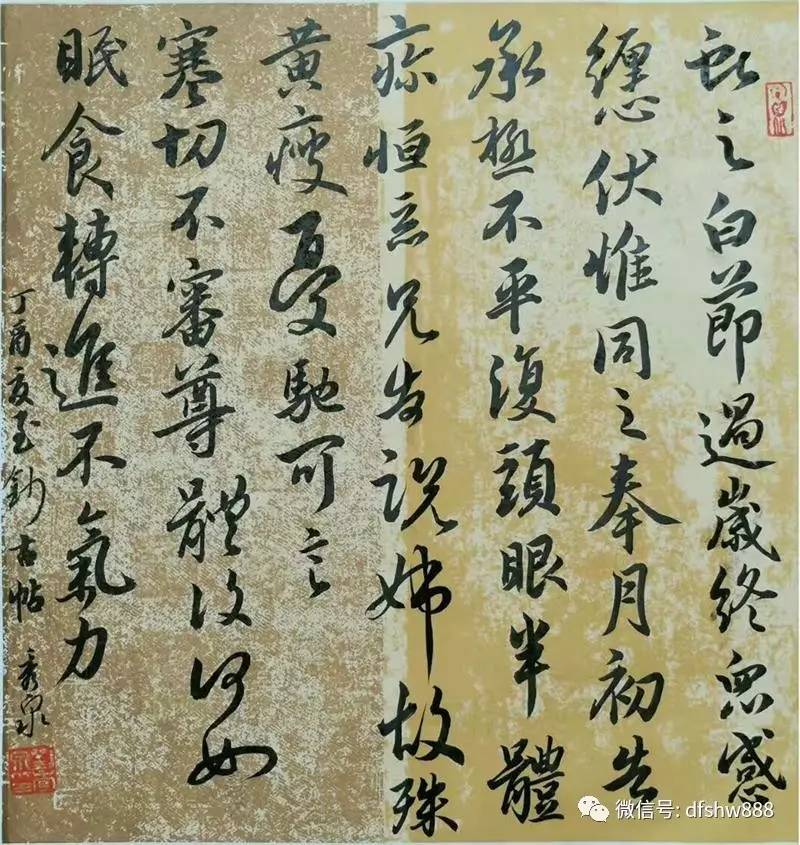 献之白節過歲終眾感
纏心伏惟同之奉月初告
承極不平復頭眼半體
疼恒惡兄告説姊故殊
黄瘦憂馳可言
寒切不審尊體復何如
眠食轉進不氣力
丁酉夏至鈔古帖 秀泉
微信号: dfshw888